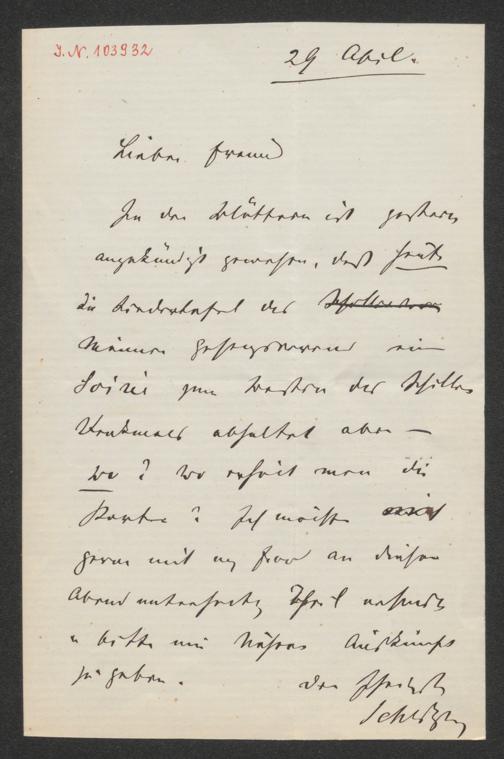 I.N. 103932
29 April.
Lieber Freund
In den Blättern ist gestern
angekündigt gewesen, daß heute
die Liedertafel des
Männer Gesangverein eine
Soiré zum besten des Schiller
Denkmals abhaltet aber —
wo? Wo erhält man die
Karten? Ich möchte
gerne mit my Frau an dieser
Abend unterhaltg Theil nehmen
u bitte mir Nähere Auskünfte
zu geben.
Dein